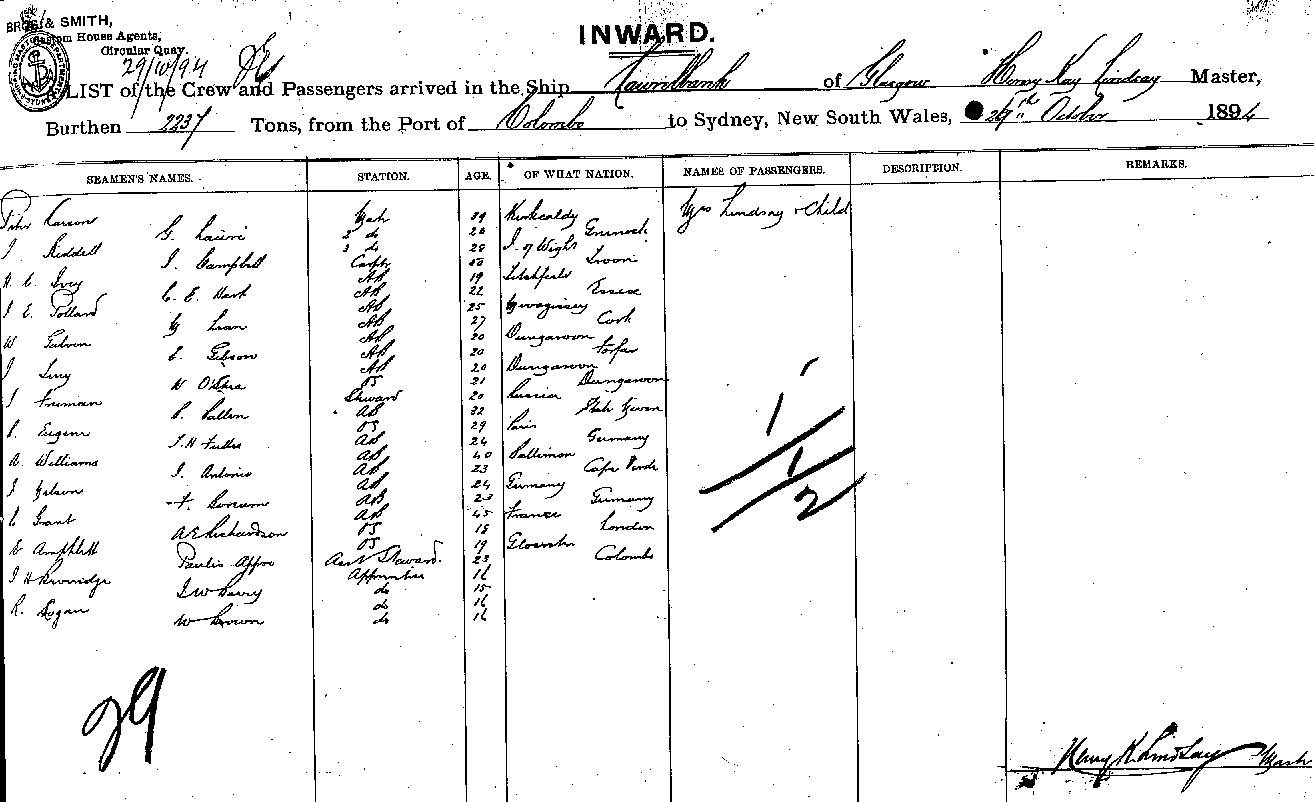 & SMITH,
House Agents,
Circular Quay.
29/10/94
INWARD.
LIST of the Crew and Passengers arrived in the Ship Laurelbank of Glasgow Henry Kay Lindsay Master,
Burthen 2237 Tons, from the Port of Colombo to Sydney, New South Wales, 29th October 1894
SEAMEN'S NAMES. STATION. AGE. OF WHAT NATION. NAMES OF PASSENGERS. DESCRIPTION. REMARKS.
John Mate 39 Kirkcaldy Mrs Lindsay & Child
G. Lawrie 2 do 28 Greenock
J. Riddell 3 do 28 I. of Wight
J. Campbell Carptr 50 Troon
Ivey AB 19 Litchfield
C. E. Hart AB 22 Essex
J. E. Pollard AB 25 Mevagissey
AB 27 Cork
W AB 20 Dungarvon
C. Gibson AB 20 Forfar
J AB 20 Dungarvon
OS 21 Dungarvon
J Freeman Steward 20 Russia
P. AB 32
P. Eugene OS 29 Paris
J. H. Fuller AB 24 Germany
A. Williams AB 40
J. Antonio AB 23 Cape Verde
J AB 24 Germany
F. AB 23 Germany
C Grant AB 45 France
A E Richardson OS 18 London
E Amphlett OS 19 Gloucester
Paulis Appoo Asst Steward. 23 Colombo
J H Apprentice 16
J W Berry do 15
R. Logan do 16
W Brown do 16
1
1
2
29
Henry K. Lindsay Mast